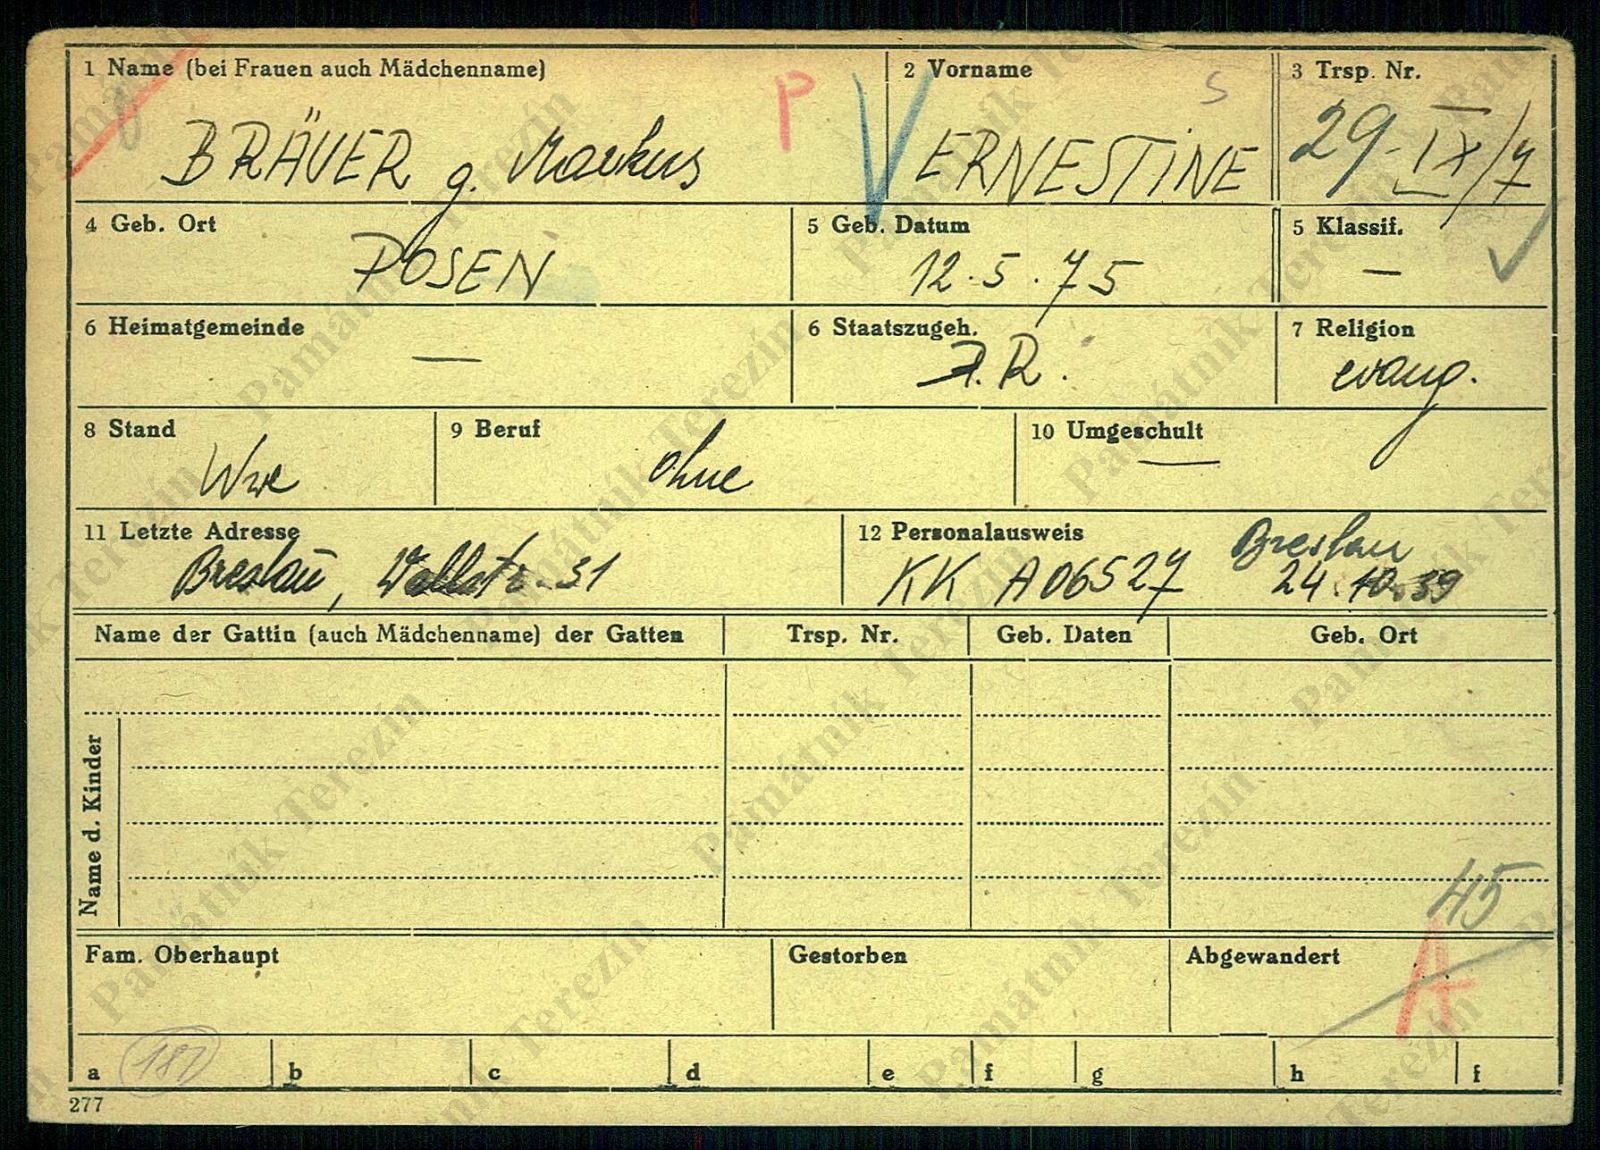 1 Name (bei Frauen auch Mädchenname)
P
V
2 Vorname
S
3 Trsp. Nr.
BRÄUER g. Markus
ERNESTINE
29-IX/7
4 Geb. Ort
POSEN
5 Geb. Datum
12.5.75
5 Klassif.
—
6 Heimatgemeinde
—
6 Staatszugeh.
D.R.
7 Religion
evang.
8 Stand
Wwe
9 Beruf
ohne
10 Umgeschult
—
11 Letzte Adresse
Breslau, Wallstr. 31
12 Personalausweis
KK A06527
Breslau
24.10.39
Name der Gattin (auch Mädchenname) der Gatten
Trsp. Nr.
Geb. Daten
Geb. Ort
Name d. Kinder
45
Fam. Oberhaupt
Gestorben
Abgewandert
A
a
b
c
d
e
f
g
h
f
277
Památník Terezín